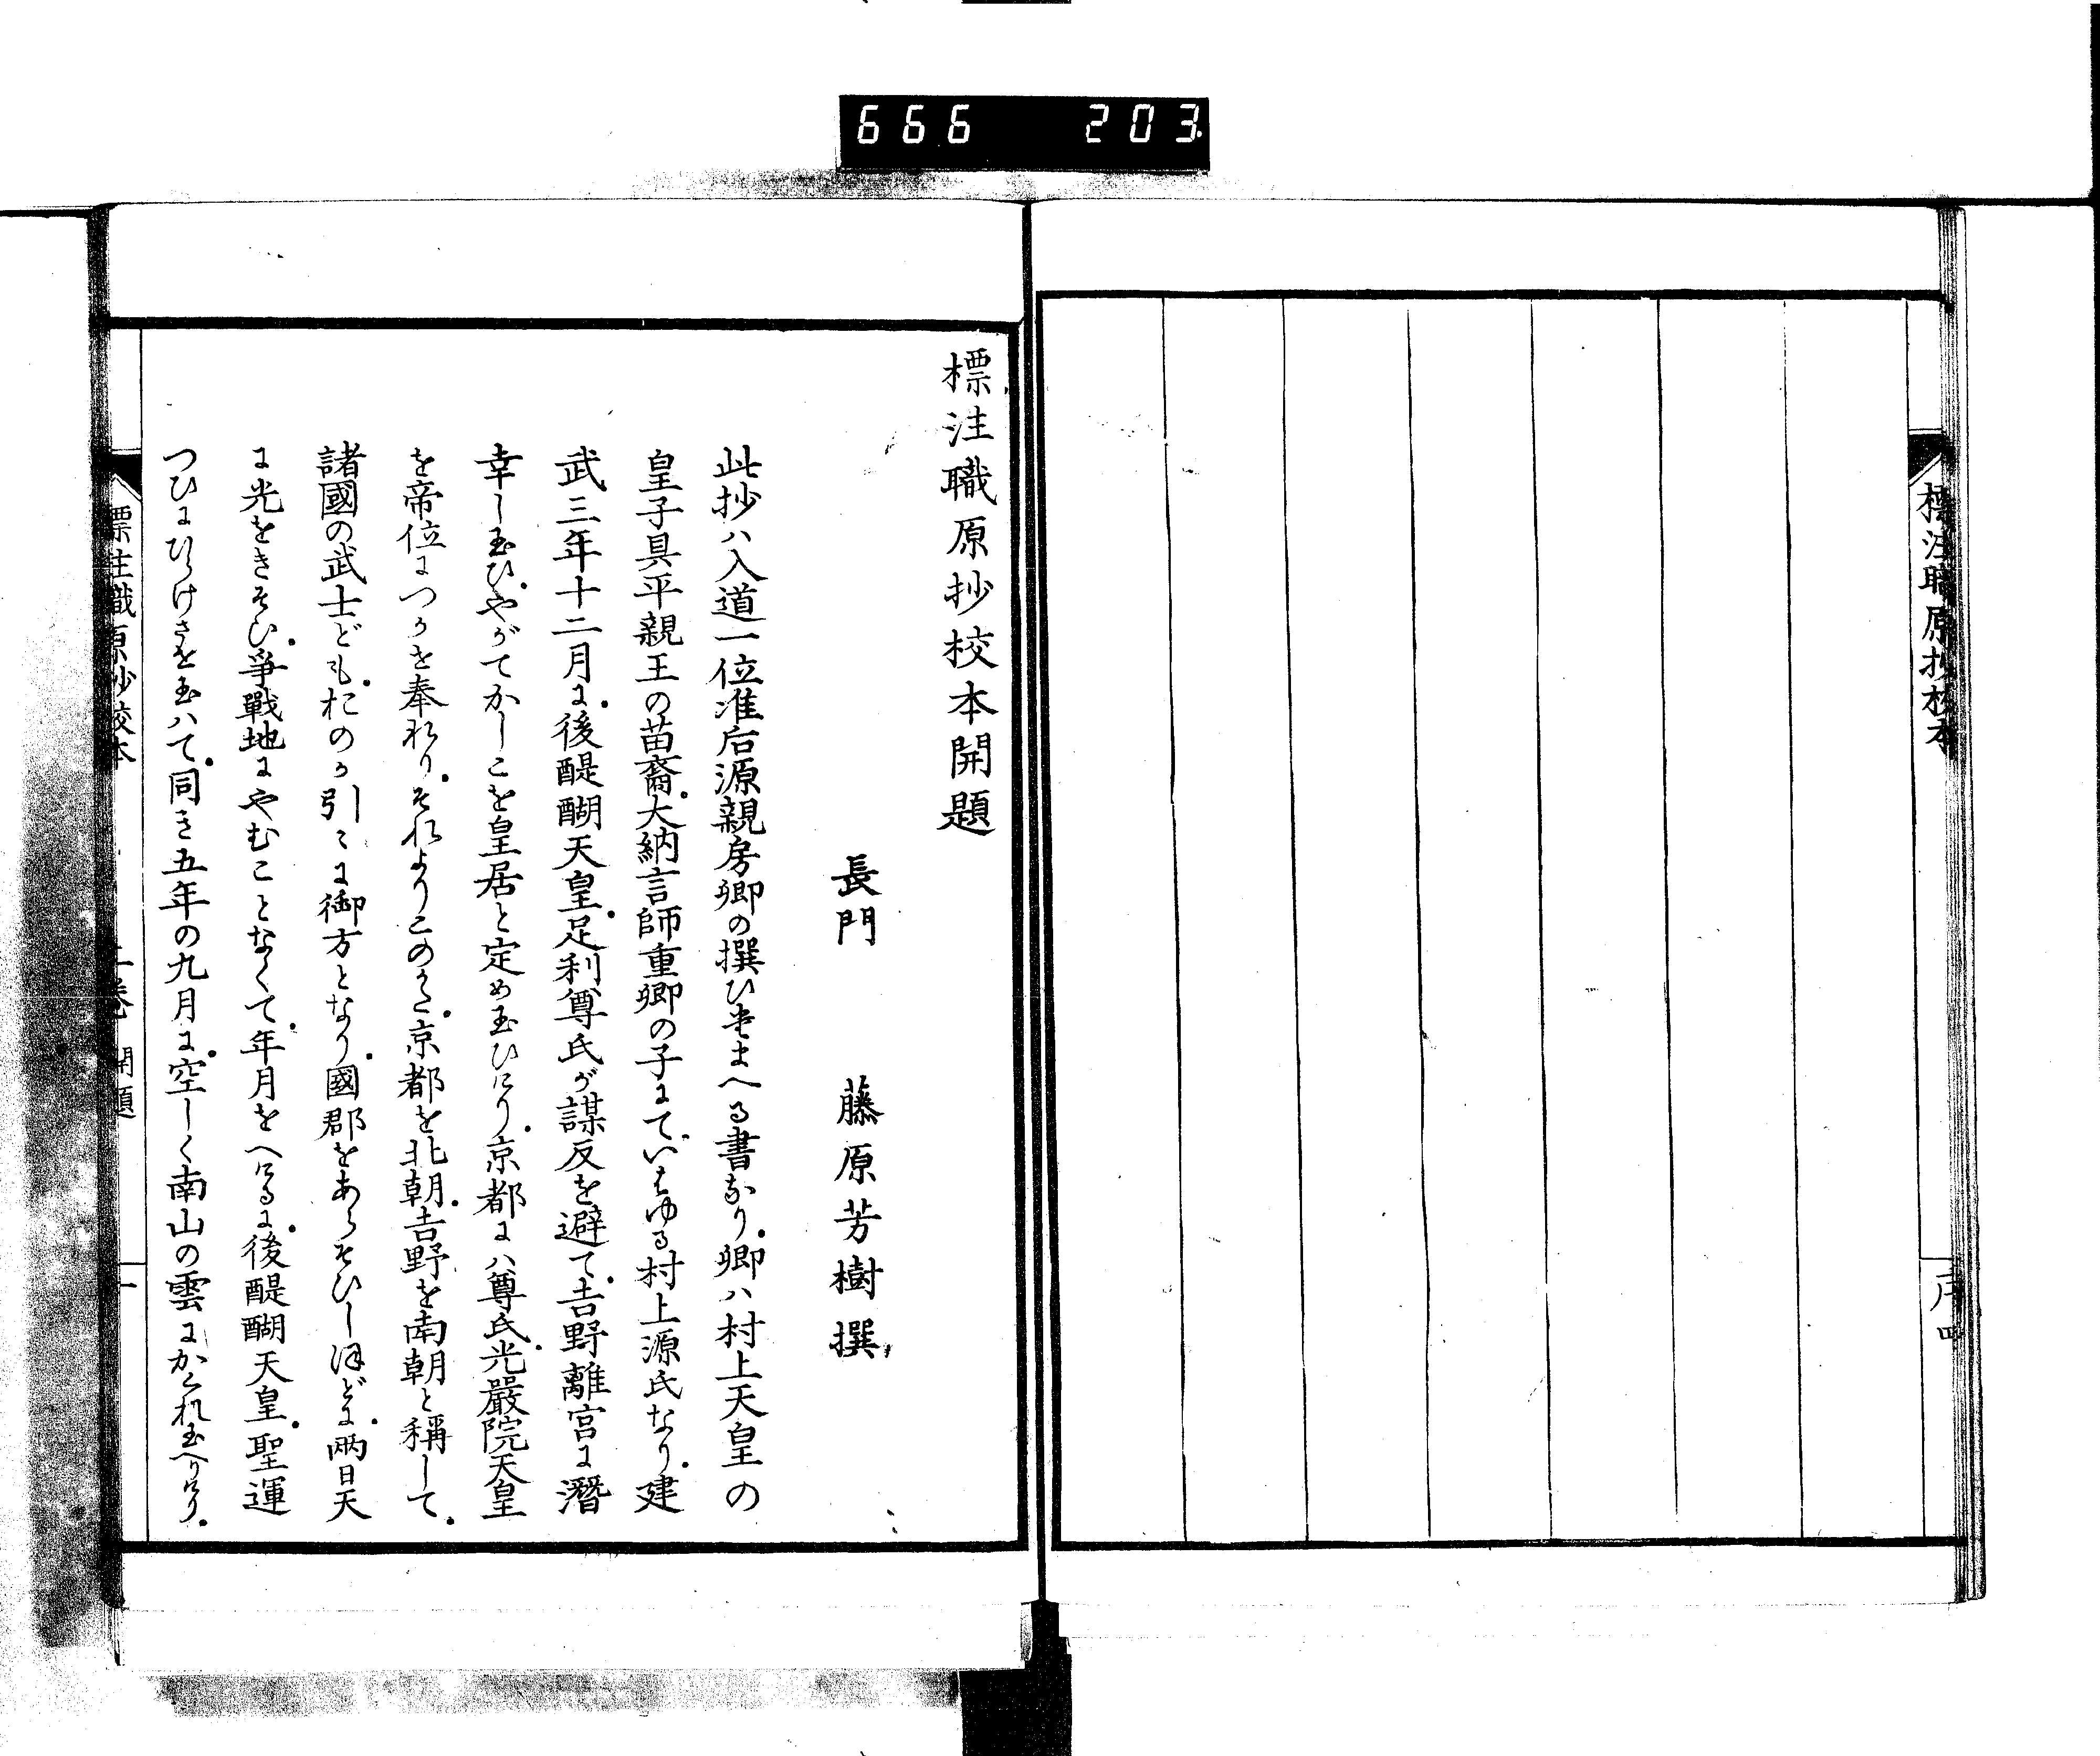 666 203
標注職原抄校本
序 四
標注職原抄校本開題
長門 藤原芳樹撰
此抄ハ入道一位准后源親房卿の撰ひたまへる書なり。卿ハ村上天皇の
皇子具平親王の苗裔。大納言師重卿の子にて。いはゆる村上源氏なり。建
武三年十二月に。後醍醐天皇。足利尊氏が謀反を避て。吉野離宮に潛
幸し玉ひ。やがてかしこを皇居と定め玉ひけり。京都にハ尊氏。光嚴院天皇
を帝位につかせ奉れり。それよりこのかた。京都を北朝。吉野を南朝と稱して。
諸國の武士ども。おのか引〻に御方となり。國郡をあらそひしほどに。兩日天
に光をきそひ。爭戰地にやむことなくて。年月をへけるに。後醍醐天皇。聖運
つひにひらけさせ玉ハて。同き五年の九月に。空しく南山の雲にかくれ玉へりけり。
標注職原抄校本 上卷 開題 一